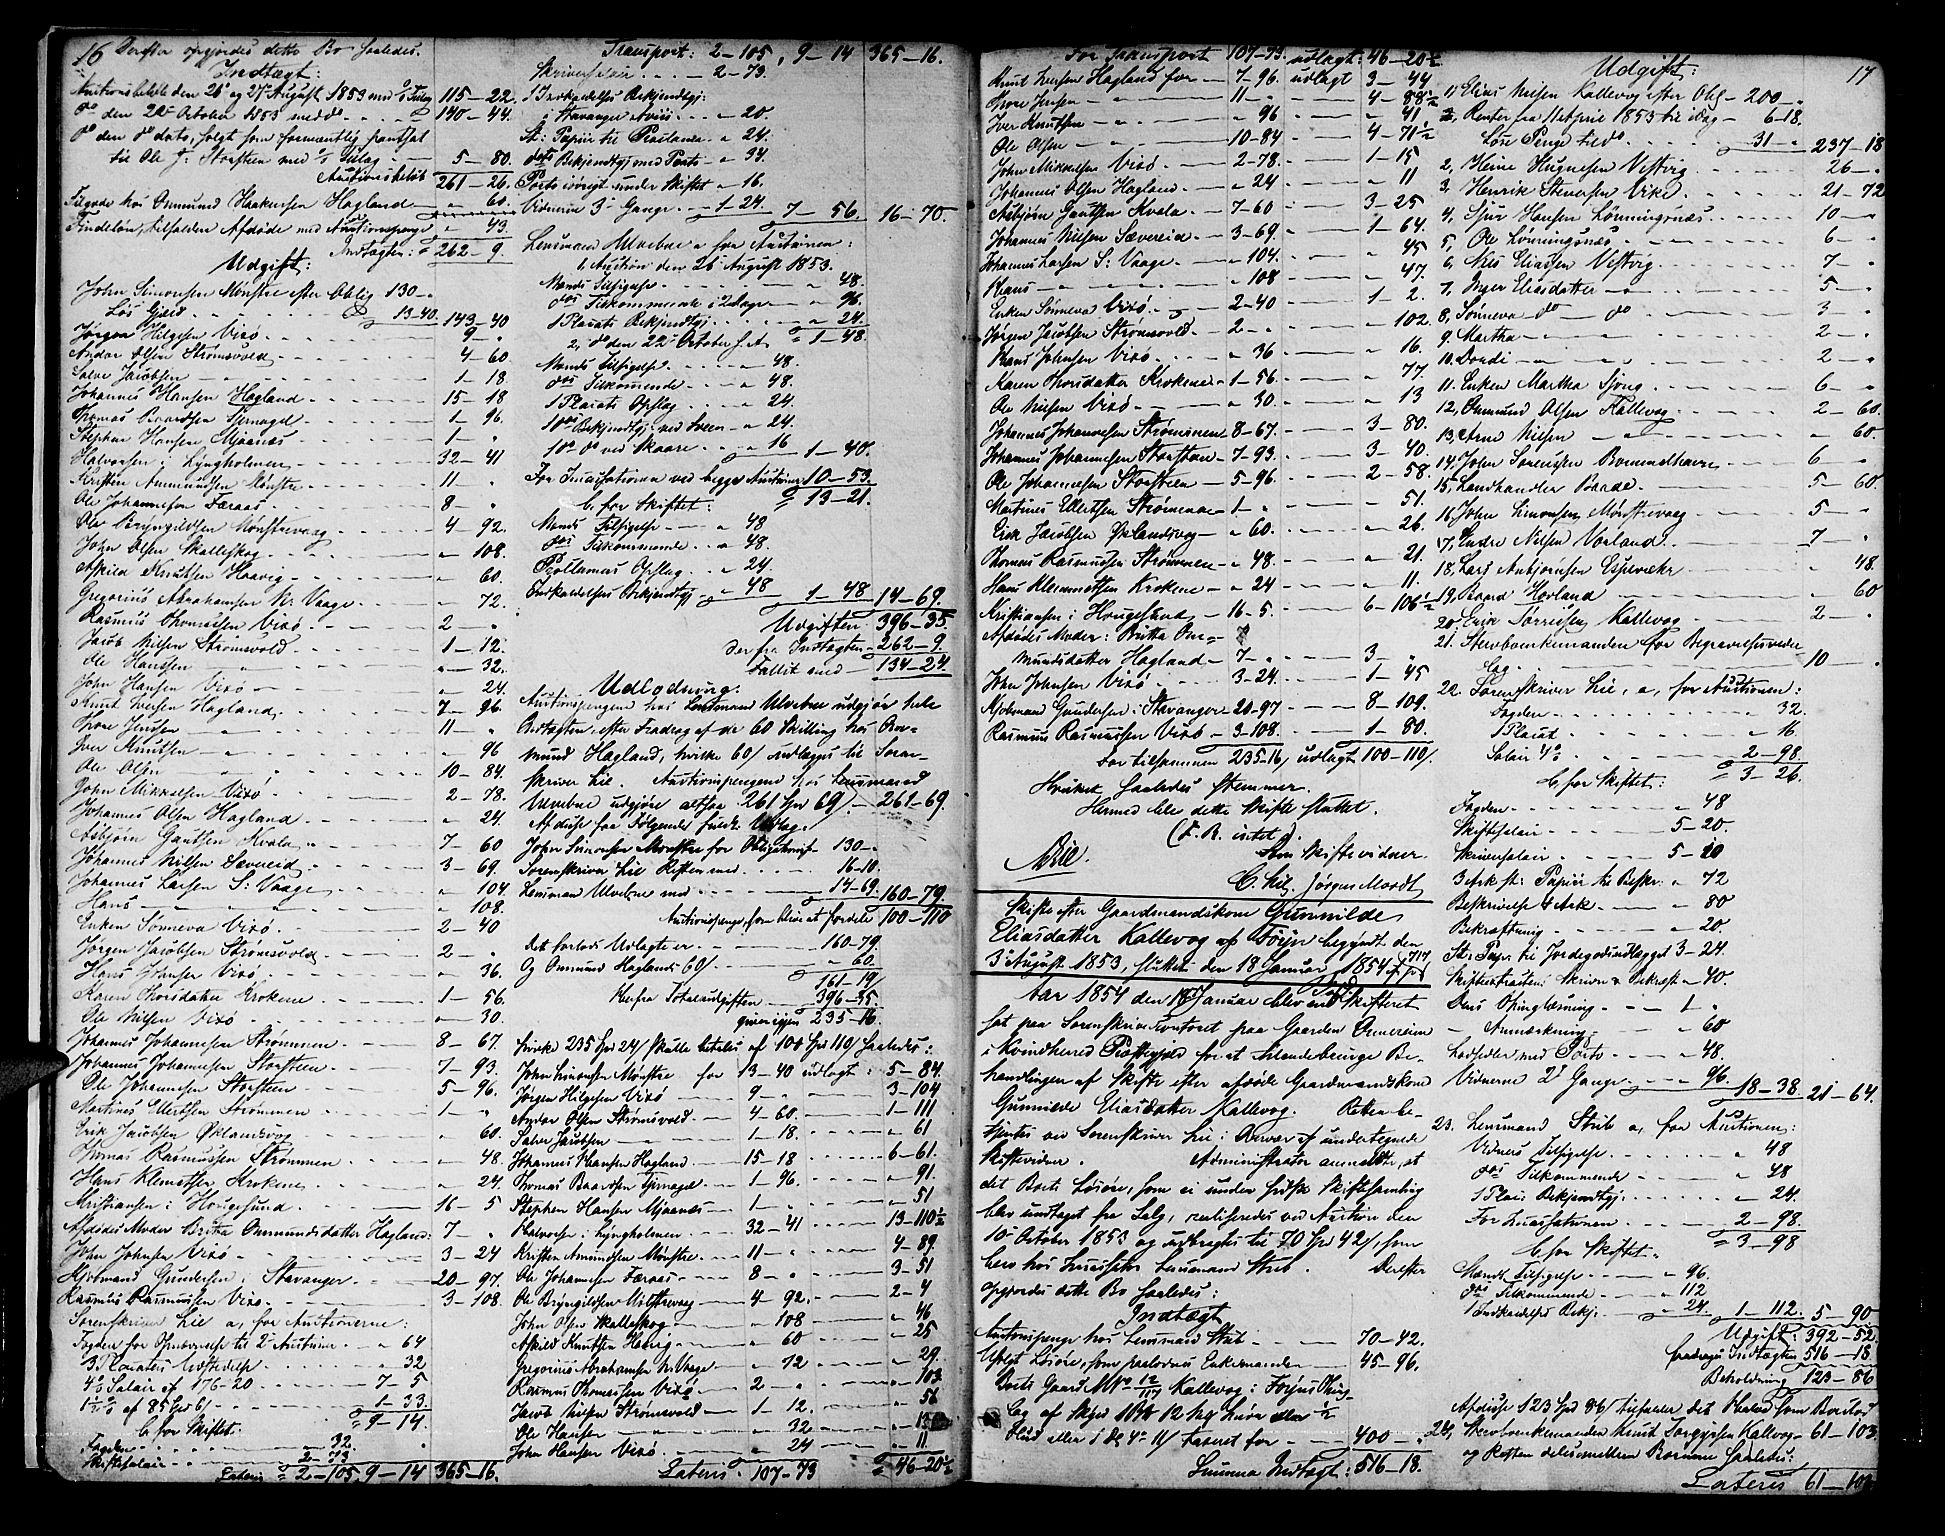 16 Derefter opgjordes dette Bo saaledes:
Indtægt:
Auctionsbeløb den 26 og 27 August 1853 med Tillæg 115–22.
do den 22 October 1853 med do 140–44.
do den do dato, solgt som formentlig pantsat
til Ole J: Storsteen med Tillæg 5–80.
Auctionsbeløb 261–26.
Tilgode hos Ommund Haakensen Hagland 60.
Findeløn, tilfalden Afdøde med Auctionspenge 43.
Indtægten: 262–9.
Udgift:
John Simonsen Mønstre efter Oblig 130–
Løs Gjæld 13–40. 143–40
Jørgen Helgesen Vixö 9–"
Andor Olsen Strømsvold 4–60.
Salve Jacobsen 1–18.
Johannes Hansen Hagland 15–18
Thomas Baardsen Tjernagel 1–96.
Stephen Hansen Mjaanæs 1–"
Halvorsen i Lyngholmen 32–41
Kristen Ammundsen Mønstre 11–"
Ole Johannesen Færaas 8–"
Ole Bryngildsen Mønstrevaag 4–92.
John Olsen Skalleskog "–108.
Askild Knutsen Haavig "–60.
Gregorius Abrahamsen Nr Vaage "–72.
Rasmus Thomassen Vixö 2–"
Jacob Nielsen Strømsvold 1–12.
Ole Hansen "–32.
John Hansen Vixö "–24.
Knut Iversen Hagland 7–96.
Thore Jensen 11–"
Iver Knutsen "–96
Ole Olsen 10–84.
John Mikkelsen Vixö 2–78.
Johannes Olsen Hagland "–24.
Asbjørn Gautsen Kvala 7–60
Johannes Nilsen Sævereid 3–69.
Johannes Larsen S: Vaage "–104.
Hans "–108.
Enken Sønneva Vixö 2–40
Jørgen Jacobsen Strømsvold 2–"
Hans Johnsen Vixö "–36.
Karen Thorsdatter Krokene 1–56.
Ole Nilsen Vixö "–30.
Johannes Johannesen Strømmen 8–67.
Johannes Johannesen Storsteen 7–93.
Ole Johannesen Storsteen 5–96.
Martines Ellertsen Strømmen 1–"
Erik Jacobsen Øklandsvog "–60.
Thomas Rasmussen Strømmen "–48.
Hans Klemetsen Krokene "–24.
Kristiansen i Hougesund 16–5
Afdødes Moder Brita Ommundsdatter Hagland 7–"
John Johnsen Vixö 3–24
Hjobmand Gundersen i Stavanger 20–97.
Rasmus Rasmussen Vixö 3–108.
Sorenskriver Lie a, for Auctionerne:
Fogden for Opnævnelse til 2 Auctioner "–64
3 Placaters Udstedelse "–32
4% Salair af 176–20 7–5
1½% af 85 1–33.
9–14.
b, for Skiftet:
Fogden 32.
Skiftesalair 2–73
Lateris 2–105. 9–14 365–16.
Transport: 2–105, 9–14 365–16.
Skriversalair 2–73.
1 Indkaldelses Bekjendtgj:
i Stavanger Avis "–20.
St: Papir til Proclama "–24.
dets Bekjendtgj med Porto "–34.
Porto iøvrigt under Skiftet "–16.
Vidnerne 3 Gange 1–24. 7–56. 16–70.
Lensmand Ulvebne a, for Auctionen:
1, Auction den 26 August 1853.
Mænds Tilsigelse "–48.
dos Tilkommende i 2 Dage "–96.
1 Placats Bekjendtgj. "–24.
2, do den 22 October f. A. 1–48.
Mænds Tilsigelse "–48.
dos Tilkommende "–48.
1 Placats Opslag "–24.
1 dos Bekjendtgj ved Sveen "–24.
1 do do ved Skaare "–16 1–40.
For Incassationen ved begge Auctioner 10–53.
13–21.
b, for Skiftet:
Mænds Tilsigelse "–48
dos Tilkommende "–48.
Proclamas Opslag "–24
Indkaldelses Bekjendtgj "–48 1–48 14–69.
Udgiften 396–35.
Derfra Indtægten 262–9.
Fallit med 134–24.
Udlodning.
Auctionspengene hos Lensmand Ulvebne udgjør hele
Indtægten, efter Fradrag af de 60 Skilling hos Om-
mund Hagland, hvilke 60/ udlægges til Soren-
skriver Lie. Auctionspengene hos Lensmand
Ulvebne udgjøre altsaa 261 Spd 69/. 261–69.
Af disse faa Følgende fuldt Udlæg:
John Simonsen Mønstre for Obligationsg. 130–
Sorenskriver Lie Resten med 16–10.
Lensmand Ulvebne med 14–69. 160–79.
Auctionspenge, som blive at fordele 100–110
Det forlods Udlagte er 160–79.
Og Ommund Haglands 60/. "–60.
161–19/
Herfra Totaludgiften 396–35.
giver igjen 235–16.
Hvilke 235 Spd 24/ skulle betales af 100 Spd 110/ saaledes:
John Simonsen Mønstre for 13–40 udlagt: 5–84.
Jørgen Helgesen Vixö 9–" 3–104
Andor Olsen Strømsvold 4–60. 1–111
Salve Jacobsen 1–18. "–61
Johannes Hansen Hagland 15–18 6–61.
Thomas Baardsen Tjernagel 1–96. "–91.
Stephen Hansen Mjaanæs 1–" "–51
Halvorsen i Lyngholmen 32–41 13–110½
Kristen Amundsen Mønstre 11–" 4–89.
Ole Johannesen Færaas 8–" 3–51
Ole Bryngildsen Mønstrevaag 4–92. 2–4
John Olsen Skalleskog "–108 "–46
Askild Knutsen Høvig "–60 "–25
Gregorius Abrahamsen Nr Vaage "–72 "–29.
Rasmus Thomassen Vixö 2–" "–103.
Jacob Nilsen Strømsvold 1–12. "–56
Ole Hansen "–32
John Hansen Vixö "–24 "–11
Lateris 107–73 46–20½
For Transport 107–73 udlagt: 46–20½
Knut Iversen Hagland for 7–96. udlagt 3–44
Thore Jensen 11–" 4–88½
Iver Knutsen "–96 "–41.
Ole Olsen 10–84 4–71½
John Mikkelsen Vixö 2–78. 1–15
Johannes Olsen Hagland "–24 "–11
Asbjørn Gautsen Kvala 7–60 3–25
Johannes Nilsen Sævereid 3–69. 1–64.
Johannes Larsen S: Vaage "–104. "–45
Hans "–108 "–47.
Enken Sønneva Vixö 2–40 1–2.
Jørgen Jacobsen Strømsvold 2–" "–102.
Hans Johnsen Vixö "–36 "–16.
Karen Thorsdatter Krokene 1–56. "–77.
Ole Nilsen Vixö "–30 "–13
Johannes Johannesen Strømmen 8–67. 3–80.
Johannes Johannesen Storsteen 7–93. 3–40.
Ole Johannesen Storsteen 5–96. 2–58.
Martines Ellertsen Strømmen 1–" "–51.
Erik Jacobsen Øklandsvog "–60. "–26.
Thomas Rasmussen Strømmen "–48. "–21.
Hans Klemmetsen Krokene "–24 "–11.
Kristiansen i Hougesund 16–5. 6–106½
Afdødes Moder: Britta Om-
mundsdatter Hagland 7–" 3–"
John Johnsen Vixö 3–24. 1–45
Hjobmand Gundersen i Stavanger 20–97. 8–109.
Rasmus Rasmussen Vixö 3–108. 1–80.
For tilsammen 235–16/ udlagt 100–110/.
Hvilket saaledes stemmer.
Hermed blev dette Skifte sluttet.
(T. R. intet).
Lie.
Som Skiftevidner
C. Lie. Jørgen Mordt
Skifte efter Gaardmandskone Gunnilde
Eliasdatter Kallevog af Föyn begyndt den
3 August 1853, sluttet den 18 Januar 1854
Aar 1854 den 18 Januar blev en Skifteret
sat paa Sorenskrivercontoret paa Gaarden Gunereim
i Kvindherred Præstegjeld for at tilendebringe Be-
handlingen af Skifte efter afdøde Gaardmandskone
Gunnilde Eliasdatter Kallevog. Retten be-
tjentes av Sorenskriver Lie i Overvær af undertegnede
Skiftevidner. Administrator anmeldte, at
det Boets Løsøre, som ei under sidste Skiftesamling
blev undtaget fra Salg, realiseredes ved Auction den
10 October 1853 og udbragtes til 70 Spd 42/, som
bero hos Incassator Lensmand Stub. Derefter
opgjordes dette Bo saaledes:
Indtægt
Auctionspenge hos Lensmand Stub 70–42.
Usolgt Løsøre, som paalodnes Enkemanden 45–96.
Boets Gaard M No 12/117 Kallevog i Föyns Thing-
lag
400–"
Summa Indtægt: 516–18.
Udgift: 17
1, Elias Nilsen Kallevog efter Oblg 200–"
2, Renter fra 11 April 1853 til idag 6–18.
Løse Penge til do 31–" 237–18
2, Heine Hugnesen Vestvig 26–"
3, Henrik Stenersen Vike 21–72
4, Sjur Hansen Lønningsnæs 10–"
5, Ole Lönningsnæs 6–"
6, Nils Eliassen Vestvig 7–"
7, Inger Eliasdatter 5–"
8, Sønneva do 3–"
9, Martha 2–"
10, Dordi 2–"
11, Enken Martha Sjong 6–"
12, Ommund Olsen Kallevog 2–60.
13, Arne Nilsen "–60.
14, John Sørensen Bommelhavn 6–"
15, Landhandler Baade 5–60.
16, John Simonsen Mønstrevaag 5–"
17, Endre Nilsen Vorland 7–"
18, Lars Anbjørnsen Espevæhr "–48.
19, Baard Hovland "–60
20, Erik Sørensen Kallevog 2–"
21, Stervboenkemanden for Begravelsesveder-
lag 10–"
22, Sorenskriver Lie, a, for Auctionen:
Fogden "–32.
1 Placat "–16.
Salair 4% 2–98.
3–26.
b, for Skiftet:
Fogden "–48
Skiftesalair 5–20.
Skriversalair 5–20
3 Ark st: Papir til Beskr. "–72
Beskrivelse 4 Ark "–80
Bekræftning "–20
St: Papr. til Jordegodsudlægget 3–24.
Skifteextracten: Skriven & Bekræft "–40.
Dens Thinglæsning 1–"
Anmærkning "–60
Lodsedler med Porto "–48.
Vidnerne 2 Gange "–96. 18–38. 21–64.
23. Lensmand Stub a, for Auctionen:
Vidners Tilsigelse "–48
dos Tilkommende "–48
1 Placs Bekjendtgj. "–24.
For Incassationen 2–98.
3–98
b, for Skiftet.
Mænds Tilsigelse "–96.
dos Tilkommende "–112
1 Indkaldelses Bekj. "–24. 1–112. 5–90
Udgift: 392–52.
fradrages Indtægten 516–18.
Beholdning 123–86
Af disse 123 Spd 86/ tilfalder det Halve som Boslod
24, Stervboenkemanden Knut Torgersen Kallevog 61–103.
og Resten deles mellem Børnene saaledes:
Lateris 61–103